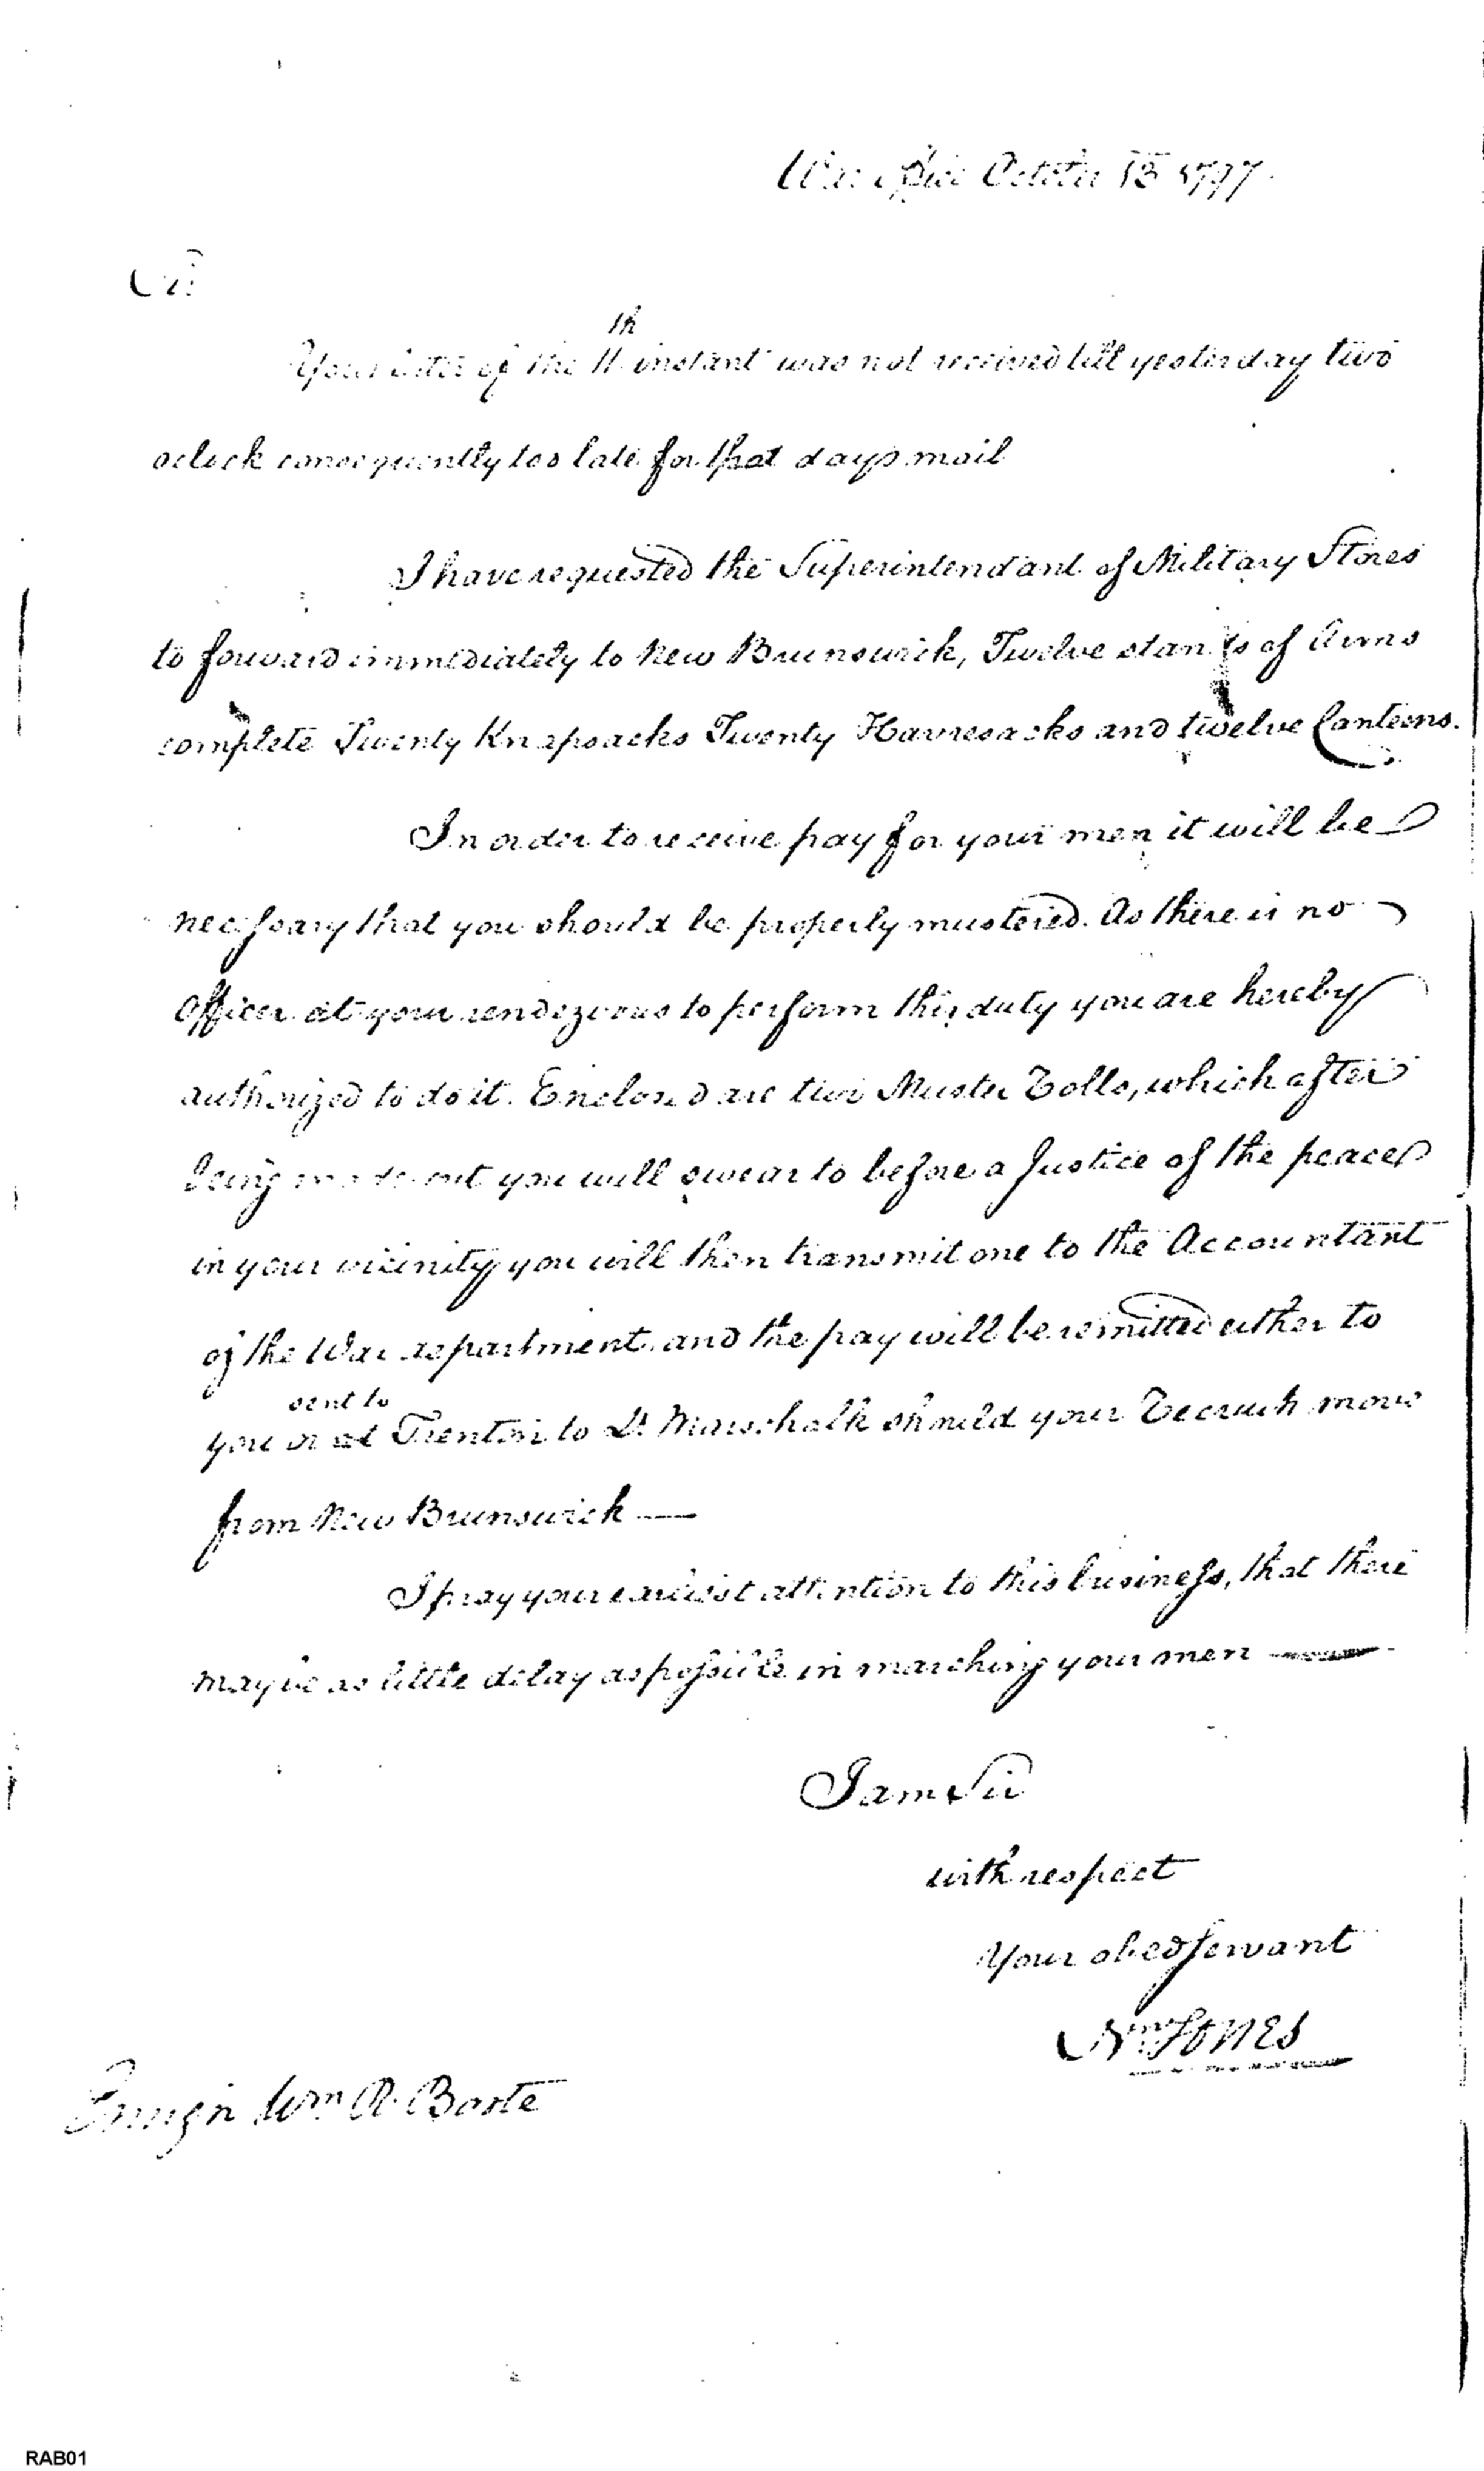 War Office October 13 1797.
Sir
Your letter of the 11th instant was not received till yesterday two
oclock consequently too late for that days mail
I have requested the Superintendant of Military Stores
to forward immediately to New Brunswick, Twelve stands of Arms
complete Twenty Knapsacks Twenty Haversacks and twelve Canteens.
In order to receive pay for your men it will be
necessary that you should be properly mustered. As there is no
Officer at your rendezvous to perform this duty you are hereby
authorized to do it. Enclosed are two Muster Rolls, which after
being made out you will swear to before a Justice of the peace
in your vicinity you will then transmit one to the Accountant
of the War department, and the pay will be remitted either to
sent to
you or at Trenton to Lt Marschalk should your Recruits move
from New Brunswick —
I pray your earliest attention to this business, that there
may be as little delay as possible in marching your men
I am Sir
with respect
Your obed servant
Nn Jones
Ensign Wm R. Boote
RAB01